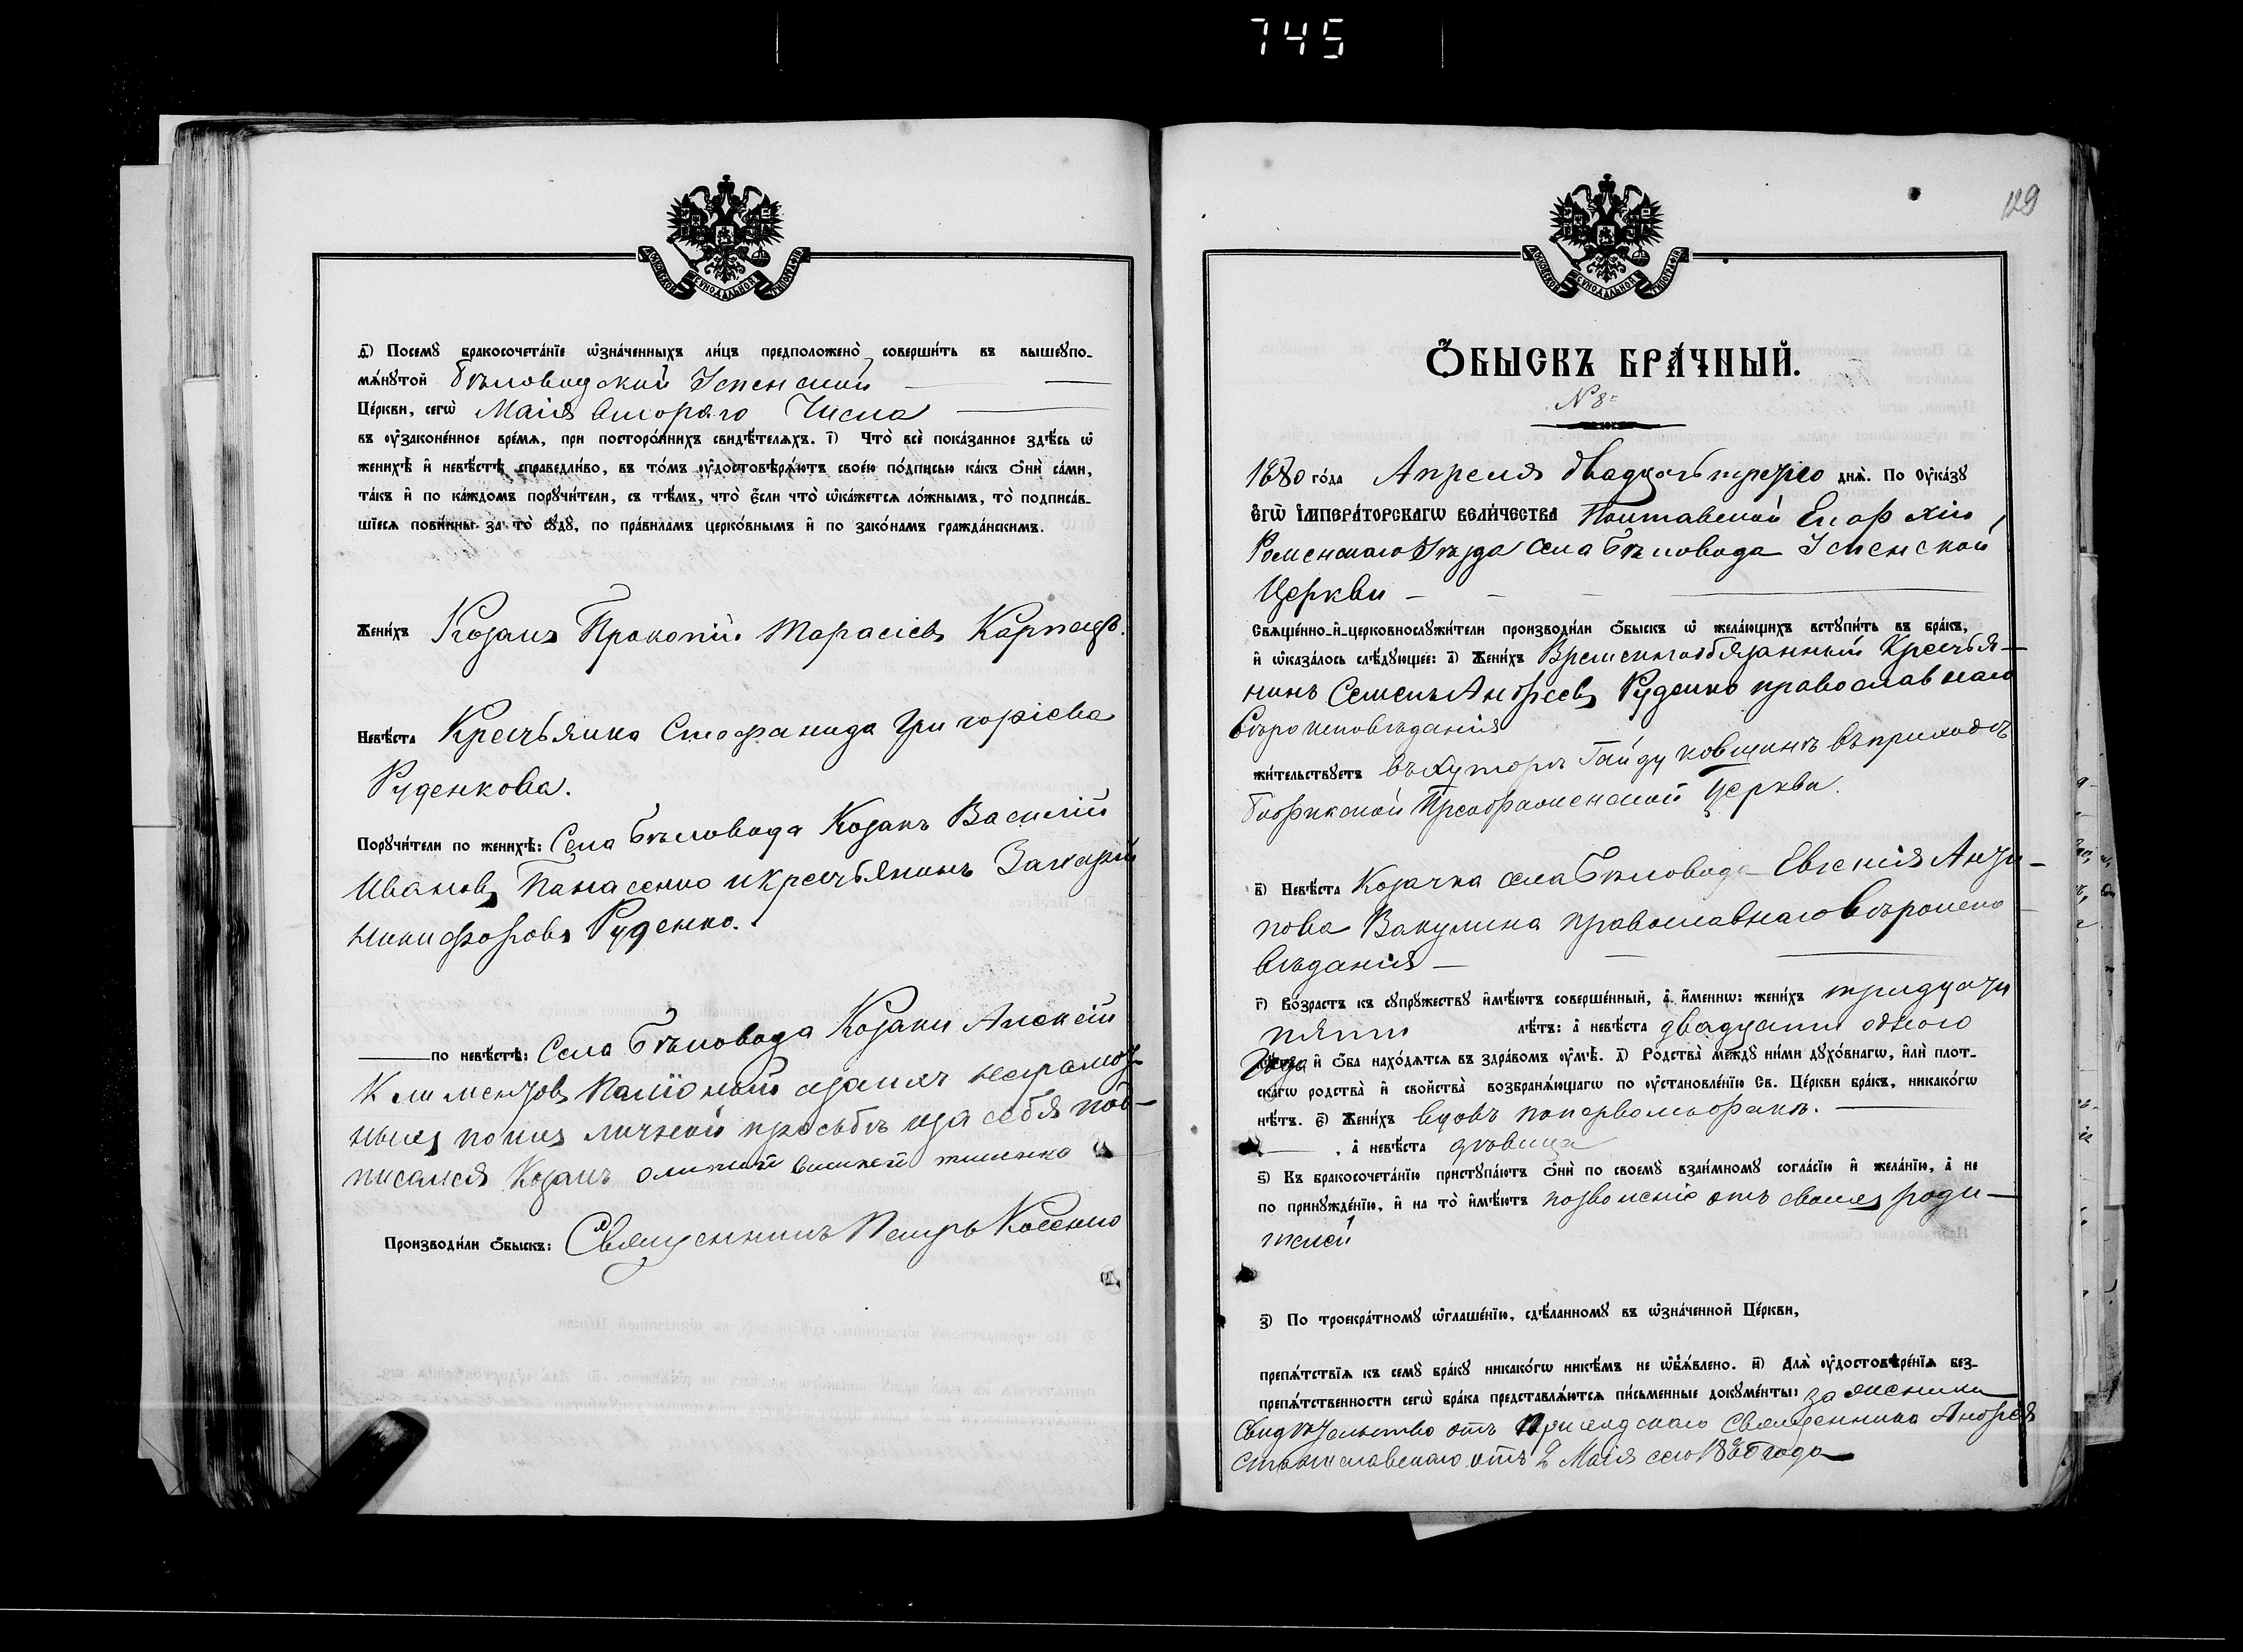 745
МОСКОВСКОЙ СѴНОДАЛЬНОЙ ТИПОГРАФІИ
ѳ҃) Посемꙋ бракосочета́нїе ѡ҆зна́ченныхъ ли́цъ предположено̀ соверши́ть въ вышеꙋпо-
мѧ́нꙋтой Бѣловодской Успенской
Це́ркви, сегѡ̀ Маія втораго Числа
въ ᲂу҆законе́нное вре́мѧ, при посторо́ннихъ свидѣ́телѧхъ. і҃) Что̀ всѐ пока́занное здѣ́сь ѡ҆
женихѣ̀ и҆ невѣ́стѣ справедли́во, въ то́мъ ᲂу҆достовѣрѧ́ютъ свое́ю по́дписью ка́къ ѻ҆нѝ са́ми,
та́къ и҆ по ка́ждомъ порꙋчи́тели, съ тѣ́мъ, что̀ є҆́сли что̀ ѡ҆ка́жетсѧ ло́жнымъ, то̀ подписа́в-
шїесѧ пови́нны за то̀ сꙋдꙋ̀, по пра́виламъ церко́внымъ и҆ по зако́намъ гражда́нскимъ.
Жени́хъ Козакъ Прокопій Тарасіевъ Карпецъ.
Невѣ́ста Крестьянка Стефанида Григоріева
Руденкова.
Порꙋчи́тели по женихѣ̀: Села Бѣловода Козакъ Василій
Ивановъ Панасенко и крестьянинъ Захарій
Никифоровъ Руденко.
по невѣ́стѣ: Села Бѣловода Козаки Алексій
Климентовъ негра­мот-
ныхъ по ихъ личной просьбѣ и за себя под-
писался Козакъ
Производи́ли ѻ҆́быскъ: Священникъ Петръ Косенко
129
МОСКОВСКОЙ СѴНОДАЛЬНОЙ ТИПОГРАФІИ
Ѻ҆́БЫСКЪ БРА́ЧНЫЙ.
№ 8
1880 го́да Апреля двадцать третьго днѧ̀. По Оу҆ка́зꙋ
Є҆ГѠ̀ І҆МПЕРА́ТОРСКАГѠ ВЕЛИ́ЧЕСТВА Полтавской Епархіи,
Роменскаго Уѣзда Села Бѣловода Успенской
Церкви
Свѧще́нно-и҆-церковнослꙋжи́тели производи́ли ѻ҆́быскъ ѡ҆ жела́ющихъ встꙋпи́ть въ бра́къ,
и҆ ѡ҆каза́лось слѣ́дꙋющее: а҃) Жени́хъ Временнообязанный Крестья-
нинъ Семенъ Андреевъ Руденко православнаго
Вѣроисповѣданія
жи́тельствꙋетъ въ хуторѣ Гайдуковщинѣ въ приходѣ
Преображенской Церкви.
в҃) Невѣ́ста Козачка села Бѣловода Евгенія Анти-
пова Вакулина православнаго Вѣроиспо-
вѣданія
г҃) Во́зрастъ къ сꙋпрꙋ́жествꙋ и҆мѣ́ютъ соверше́нный, а҆ и҆́меннѡ: жени́хъ тридцати
пяти лѣ́тъ: а҆ невѣ́ста двадцати одного
Года и҆ ѻ҆́ба нахо́дѧтсѧ въ здра́вомъ ᲂу҆мѣ̀. д҃) Родства̀ междꙋ̀ ни́ми дꙋхо́внагѡ, и҆лѝ плот-
скагѡ родства̀ и҆ свойства̀ возбранѧ́ющагѡ по ᲂу҆становле́нїю Св. Це́ркви бра́къ, никако́гѡ
нѣ́тъ. є҃) Жени́хъ вдовъ по первомъ бракѣ.
, а҆ невѣ́ста дѣвица
ѕ҃) Къ бракосочета́нїю пристꙋпа́ютъ ѻ҆нѝ по своемꙋ̀ взаи́мномꙋ согла́сїю и҆ жела́нїю, а҆ не
по принꙋжде́нїю, и҆ на то̀ и҆мѣ́ютъ позволеніе отъ своихъ роди-
телей
з҃) По троекра́тномꙋ ѡ҆глаше́нїю, сдѣ́ланномꙋ въ ѡ҆зна́ченной Це́ркви,
препѧ́тствїѧ къ семꙋ̀ бра́кꙋ никако́гѡ никѣ́мъ не ѡ҆б̾ѧ́влено. и҃) Длѧ̀ ᲂу҆достовѣре́нїѧ без-
препѧ́тственности сегѡ̀ бра́ка представлѧ́ютсѧ пи́сьменные докꙋме́нты: за жениха
Свидѣтельство отъ Приходскаго Священника Андрея
отъ 2 Маія сего 1880 года